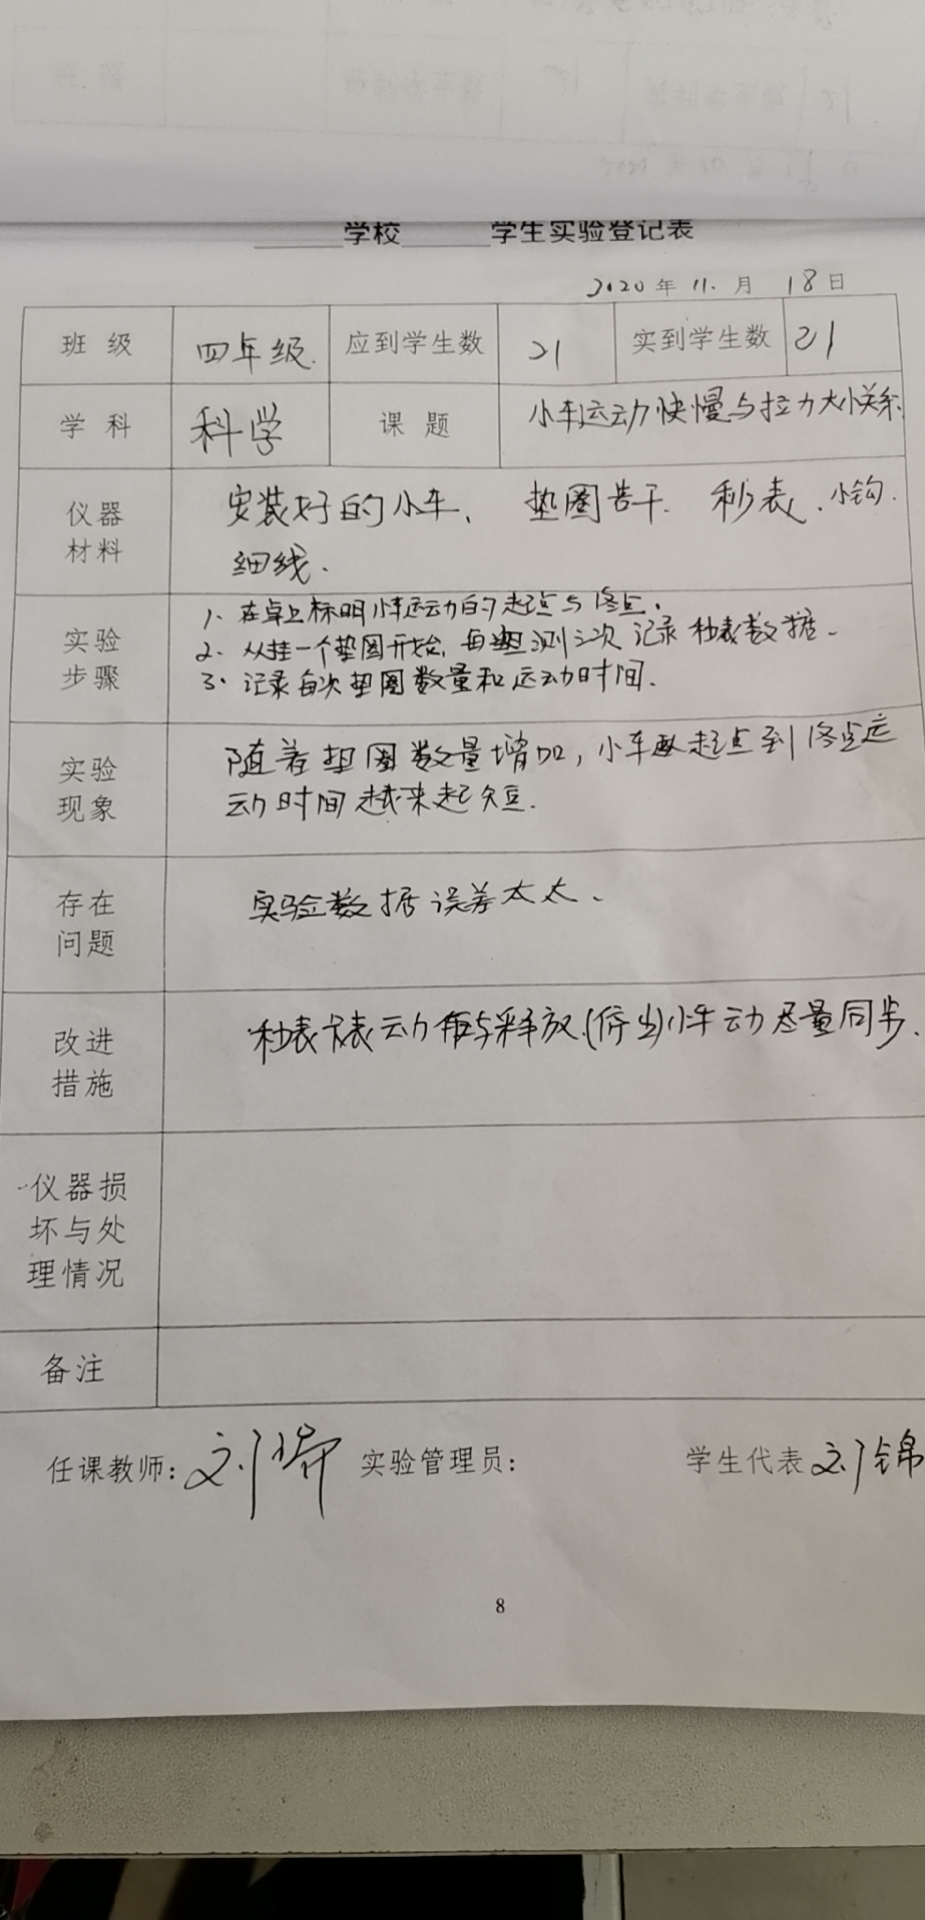 学校 学生实验登记表
2020年11月18日
班级 四年级 应到学生数 21 实到学生数 21
学科 科学 课题 小车运动快慢与拉力大小关系
仪器材料 安装好的小车、垫圈若干、秒表、小钩、
细线.
实验步骤 1、在桌上标明小车运动的起点与终点.
2、从挂一个垫圈开始, 每 测三次 记录秒表数据.
3、记录每次垫圈数量和运动时间.
实验现象 随着垫圈数量增加,小车 起点到终点运
动时间越来起短.
存在问题 实验数据误差太大、
改进措施 秒表 动 与释放(停止)小车 动尽量同步.
仪器损坏与处理情况
备注
任课教师: 刘 实验管理员: 学生代表 刘锦
8